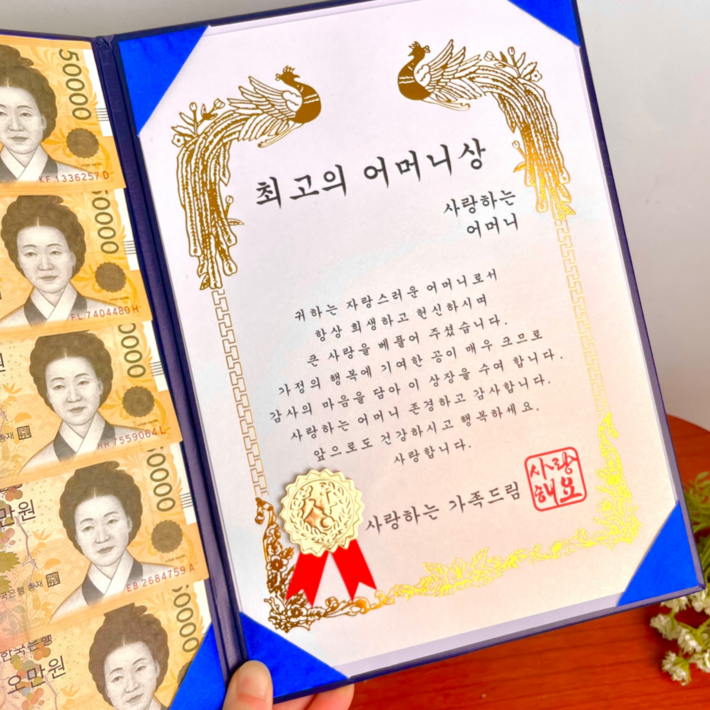 50000
KF 1336257 D
50000
FL 7404480 H
원
0000
총재
HR 7559064 L
0000
만원
국은행 총재
EB 2684759 A
0000
한국은행
오만원
최고의 어머니상
사랑하는
어머니
귀하는 자랑스러운 어머니로서
항상 희생하고 헌신하시며
큰 사랑을 베풀어 주셨습니다.
가정의 행복에 기여한 공이 매우 크므로
감사의 마음을 담아 이 상장을 수여 합니다.
사랑하는 어머니 존경하고 감사합니다.
앞으로도 건강하시고 행복하세요.
사랑합니다.
사랑하는 가족드림
사랑
해요